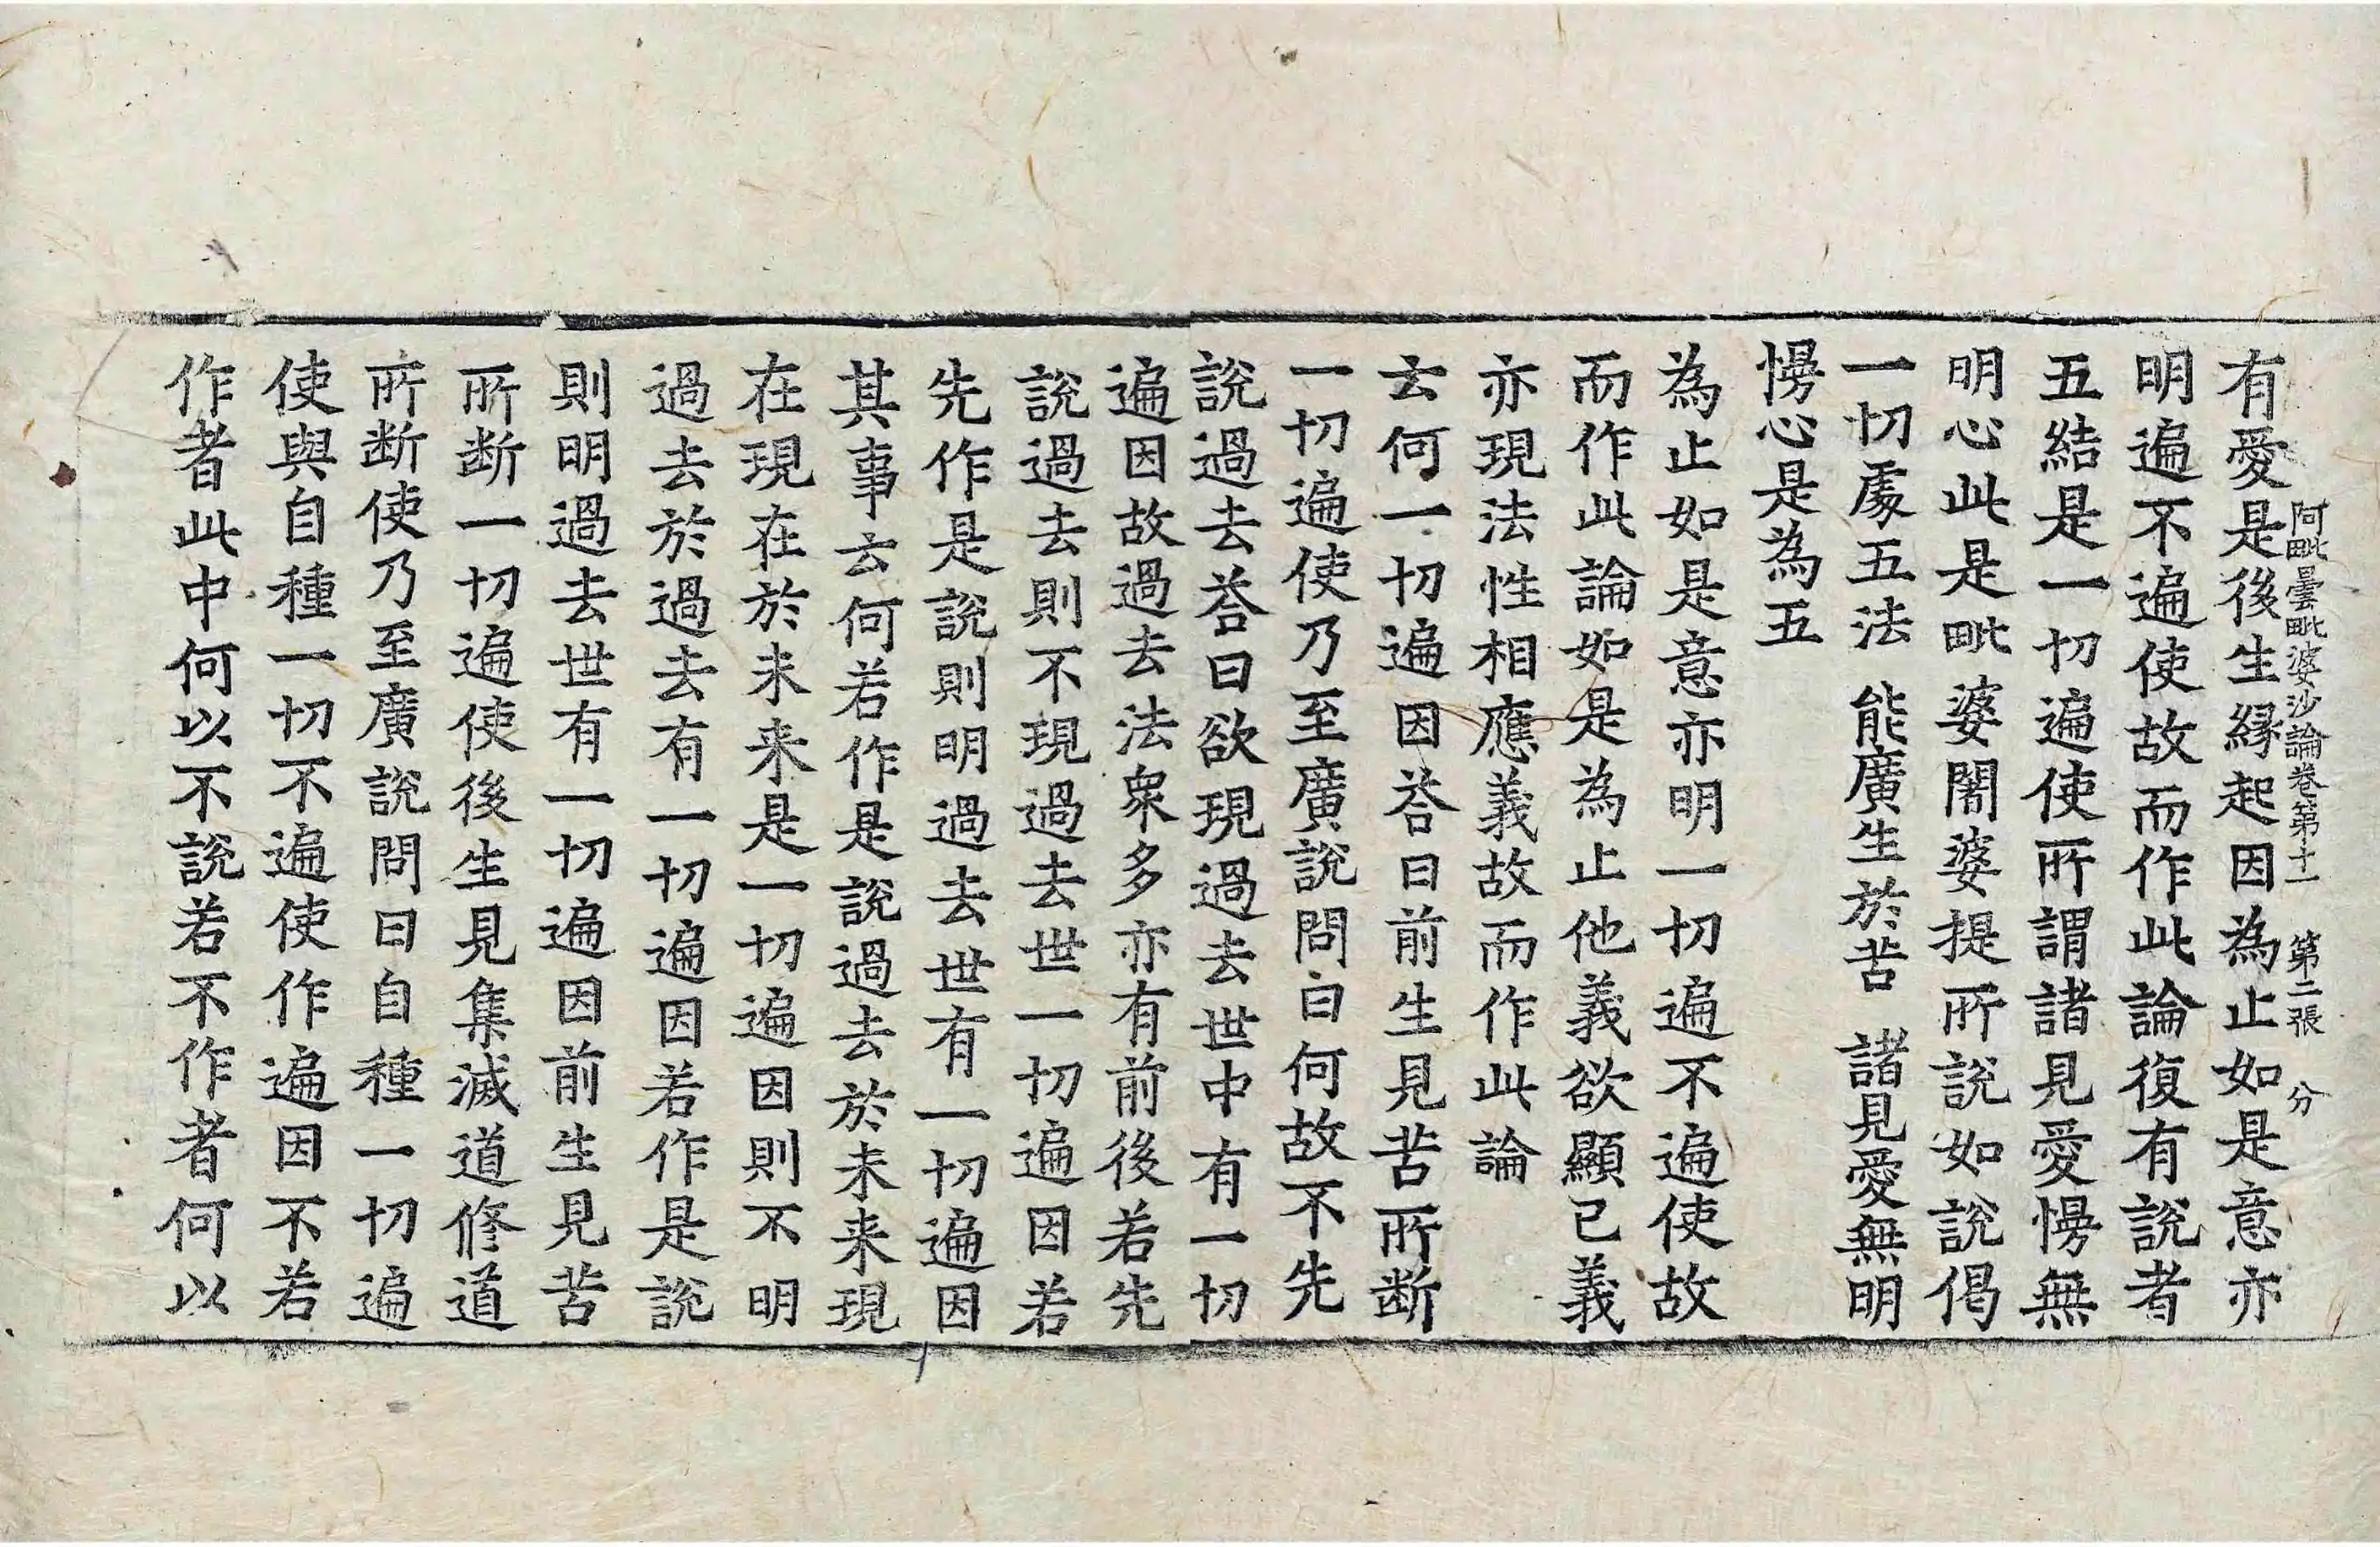 有愛是後生縁起因為止如是意亦
阿毗曇毗婆沙論卷第十一 第二張 分
明遍不遍使故而作此論復有說者
五結是一切遍使所謂諸見愛慢無
明心此是毗婆闍婆提所說如說偈
一切處五法 能廣生於苦 諸見愛無明
慢心是為五
為止如是意亦明一切遍不遍使故
而作此論如是為止他義欲顯已義
亦現法性相應義故而作此論
云何一切遍因荅曰前生見苦所断
一切遍使乃至廣說問曰何故不先
說過去荅曰欲現過去世中有一切
遍因故過去法衆多亦有前後若先
說過去則不現過去世一切遍因若
先作是說則明過去世有一切遍因
其事云何若作是說過去於未来現
在現在於未来是一切遍因則不明
過去於過去有一切遍因若作是說
則明過去世有一切遍因前生見苦
所断一切遍使後生見集滅道修道
所断使乃至廣說問曰自種一切遍
使與自種一切不遍使作遍因不若
作者此中何以不說若不作者何以